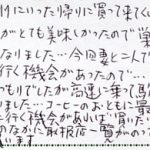 けにいった帰りに買って来てくい
がとても美味しかったので巣
なりました…今回妻と二人で
行く機会があったので…
っもりでしたが高速に乗って買
ました…コーヒーのおともに最
行く機会があれば買いた
のなかに取扱店一覧がのって
います